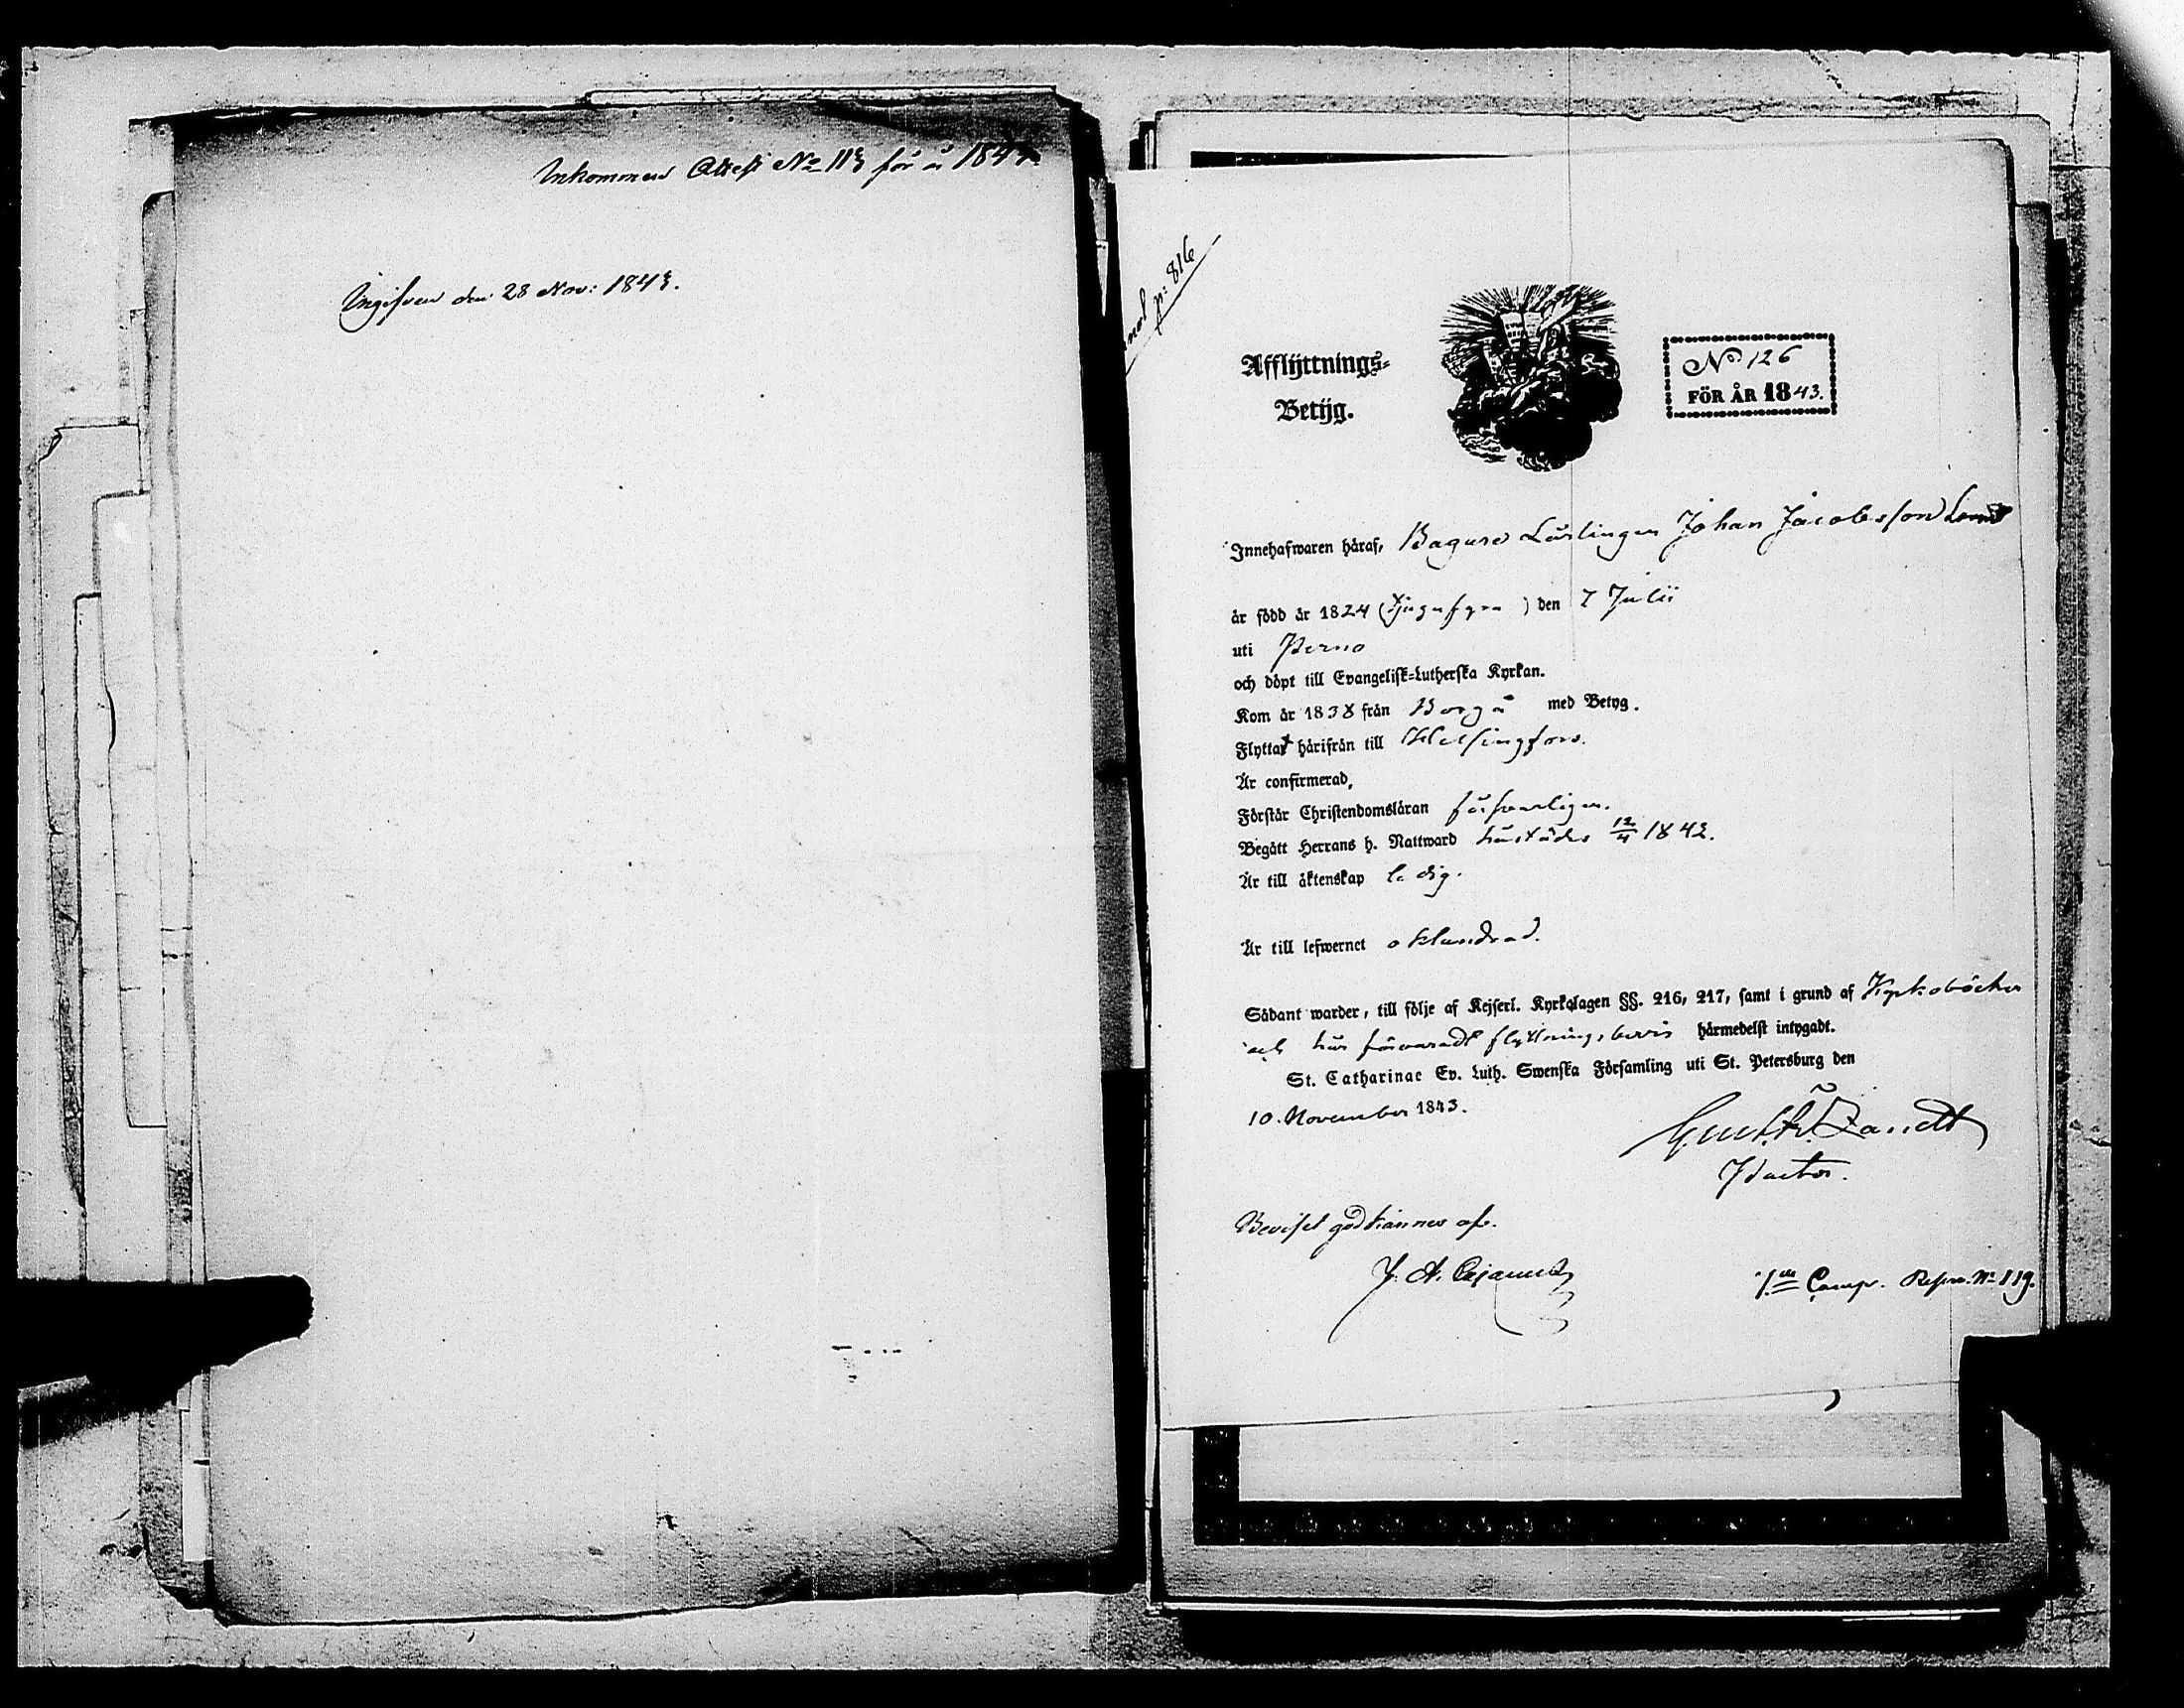 Inkommen Attest No 113 för år 1843
Ingifven den 28 Nov: 1843.
p: 816
Afflyttnings-
Betyg.
No. 126
FÖR ÅR 1843.
Innehafwaren håraf, Bagare Lärlingen Johan Jacobsson
är född år 1824 (tjugufyra) den 7 Julii
uti Perno
och döpt till Evangelisk-Lutherska Kyrkan.
Kom år 1838 från Borgå med Betyg.
Flyttat härifrån till Helsingfors.
Är confirmerad,
Förstår Christendomsläran försvarligen.
Begått Herrans h. Nattward härstädes 12/4 1842.
Är till äktenskap ledig.
Är till lefwernet oklandrad.
Sådant warder, till följe af Kejserl. Kyrkolagen §§. 216, 217, samt i grund af Kyrkoböcker
och här förvaradt flyttningsbevis härmedelst intygadt.
St. Catharinae Ev. Luth. Swenska Församling uti St. Petersburg den
10. November 1843.
Gust. Fr. Zandt
Pastor.
Beviset godkännes af.
J. A. Cajanus
Comp. No 119.